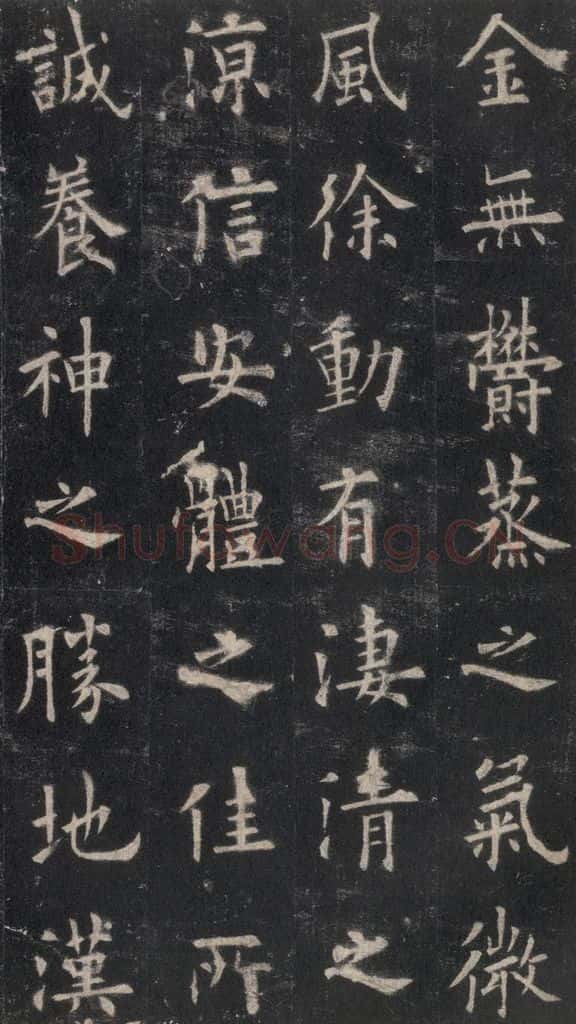 金無欝蒸之氣微
風徐動有淒清之
涼信安體之佳所
誠養神之勝地漢
Shufawang.CN